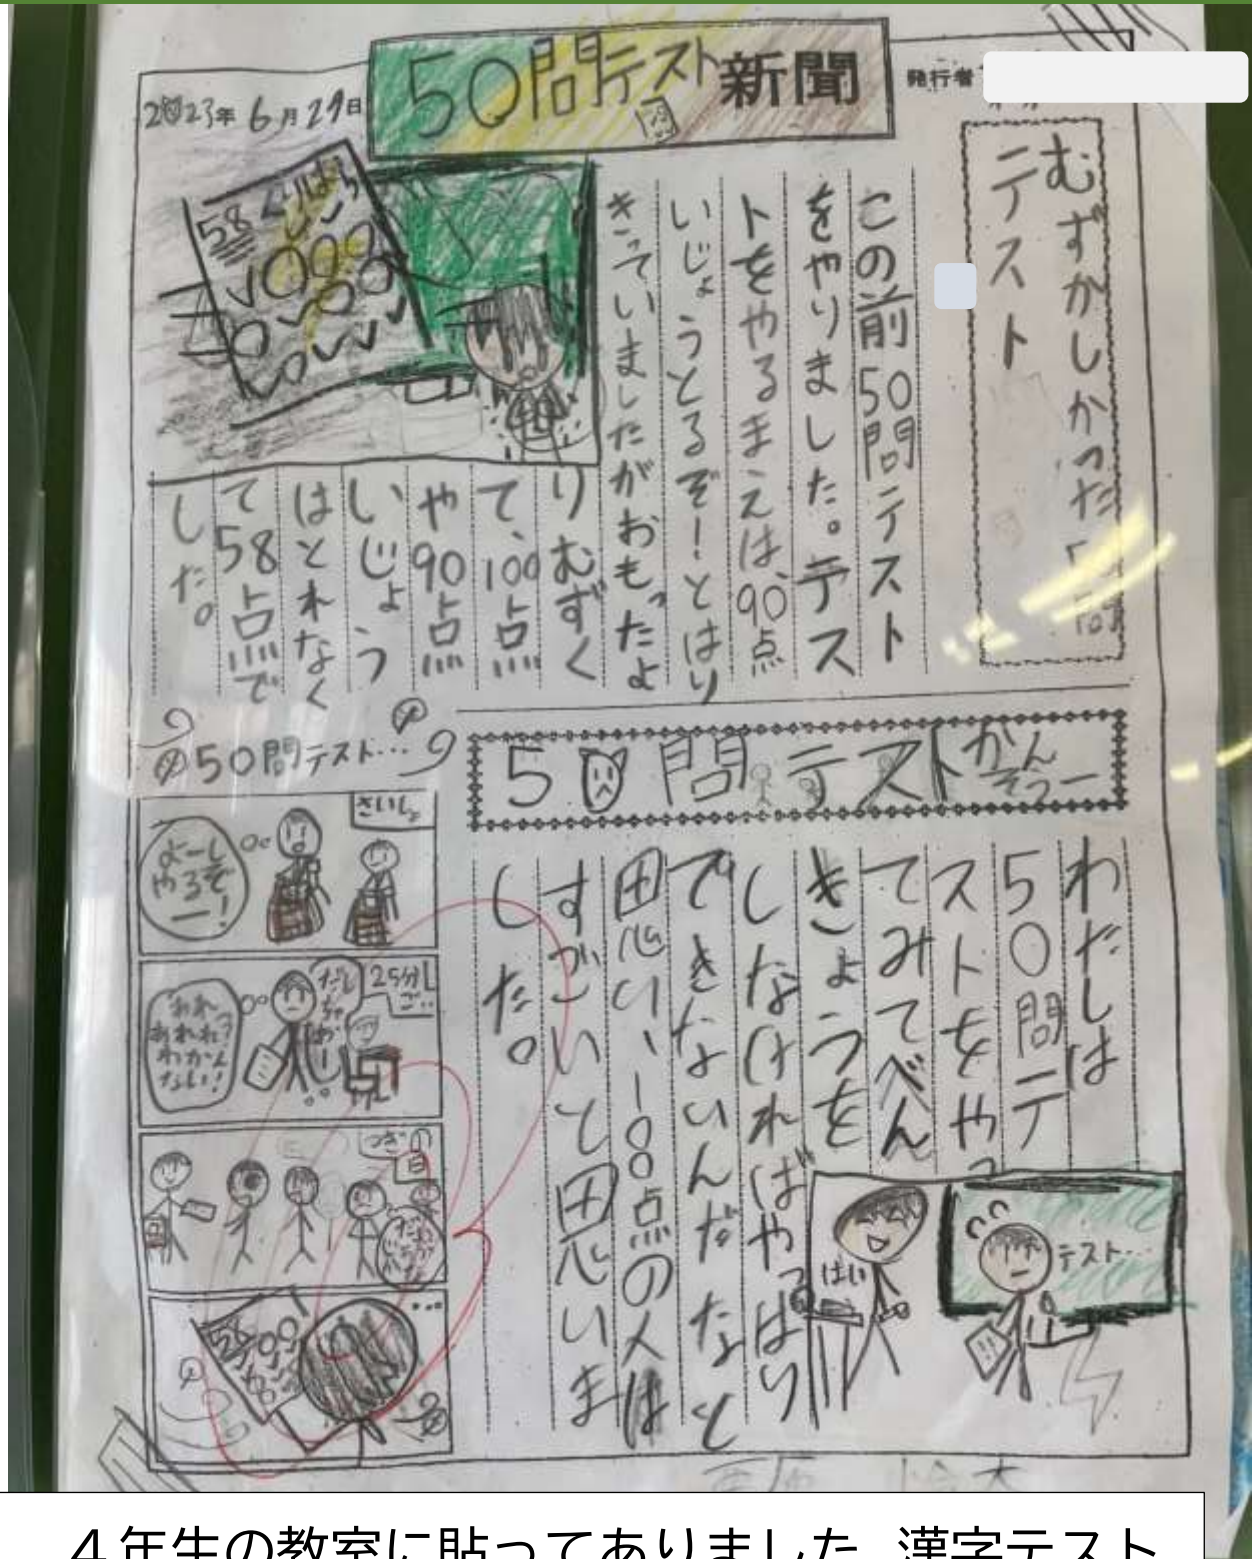 50問テスト新聞
2023年6月29日
発行者
むずかしかった50問
テスト
この前50問テスト
をやりました。テス
トをやるまえは、90点
いじょうとるぞ!とはり
きっていましたがおもったよ
りむずく
て、100点
や90点
いじょう
はとれなく
て58点で
した。
58
50問テストかんそう
わたしは
50問テ
ストをやっ
てみてべん
きょうを
しなければやっぱり
できないんだなと
思い、100点の人は
すごいと思いま
した。
はい
テスト…
50問テスト…
さいしょ
よーし
やるぞ
ー!
25分
ご…
あれ
あれれ?
わかん
ない!
つぎの
日
58
4年生の教室に貼ってありました 漢字テスト